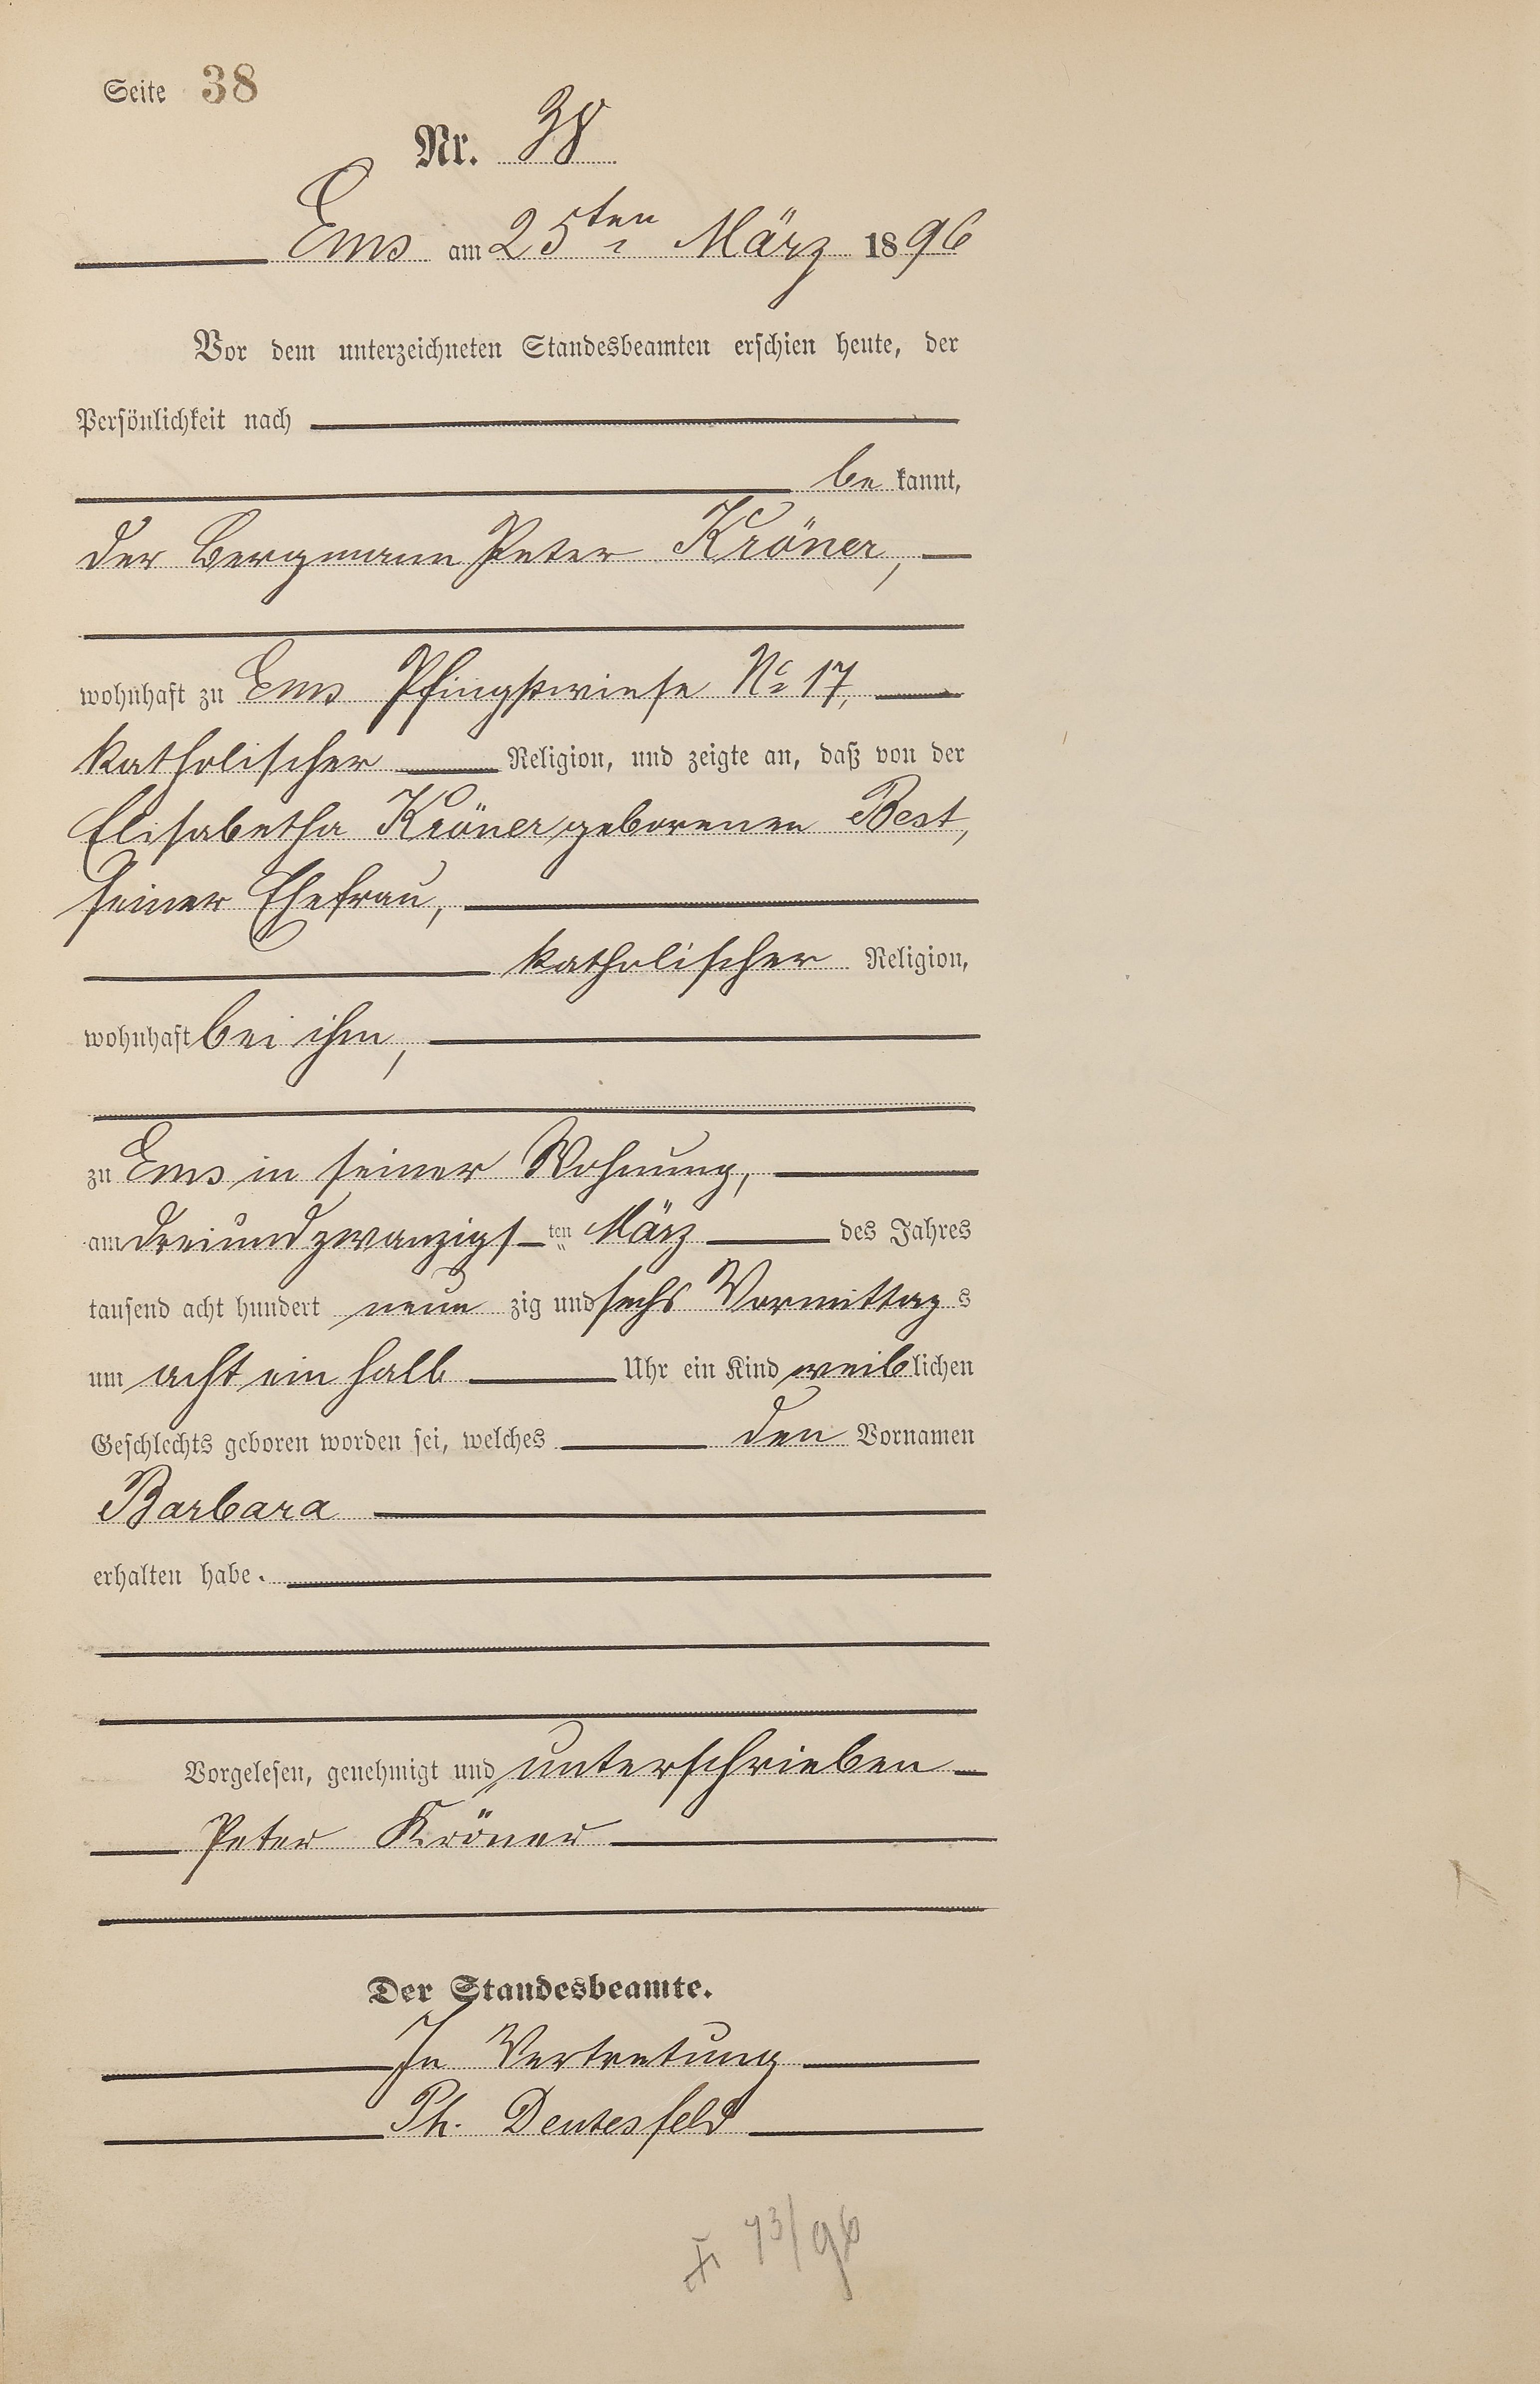 Seite 38
Nr. 38
Ems am 25ten März 1896
Vor dem unterzeichneten Standesbeamten erschien heute, der
Persönlichkeit nach
be kannt,
der Bergmann Peter Kröner,
wohnhaft zu Ems Pfingstwiese No 17,
katholischer Religion, und zeigte an, daß von der
Elisabetha Kröner geborenen Best,
seiner Ehefrau,
katholischer Religion,
wohnhaft bei ihm,
zu Ems in seiner Wohnung,
am dreiundzwanzigsten März des Jahres
tausend acht hundert neun zig und sechs Vormittags
um acht ein halb Uhr ein Kind weiblichen
Geschlechts geboren worden sei, welches den Vornamen
Barbara
erhalten habe.
Vorgelesen, genehmigt und unterschrieben
Peter Kröner
Der Standesbeamte.
In Vertretung
Ph. Deutesfeld
73/96